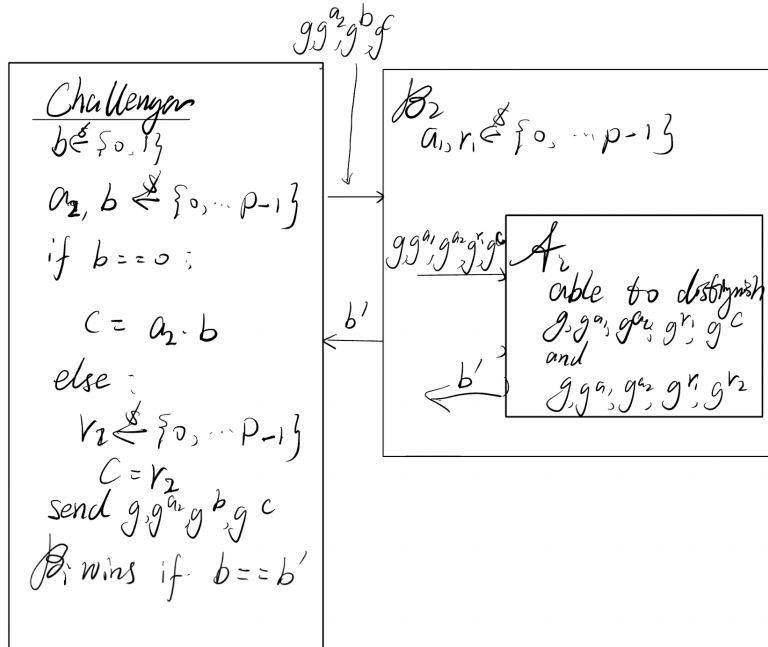 g,g^a₂,g^b,g^c
Challenger
b ←$ {0,1}
a₂, b ←$ {0,...p-1}
if b==0:
C = a₂·b
else:
r₂ ←$ {0,...p-1}
C = r₂
send g,g^a₂,g^b,g^c
B₁ wins if b==b'
b'
B₂
a₁,r₁ ←$ {0,...p-1}
g,g^a₁,g^a₂,g^r₁,g^c
b'
A₂
able to distinguish
g,g^a₁,g^a₂,g^r₁,g^c
and
g,g^a₁,g^a₂,g^r₁,g^r₂